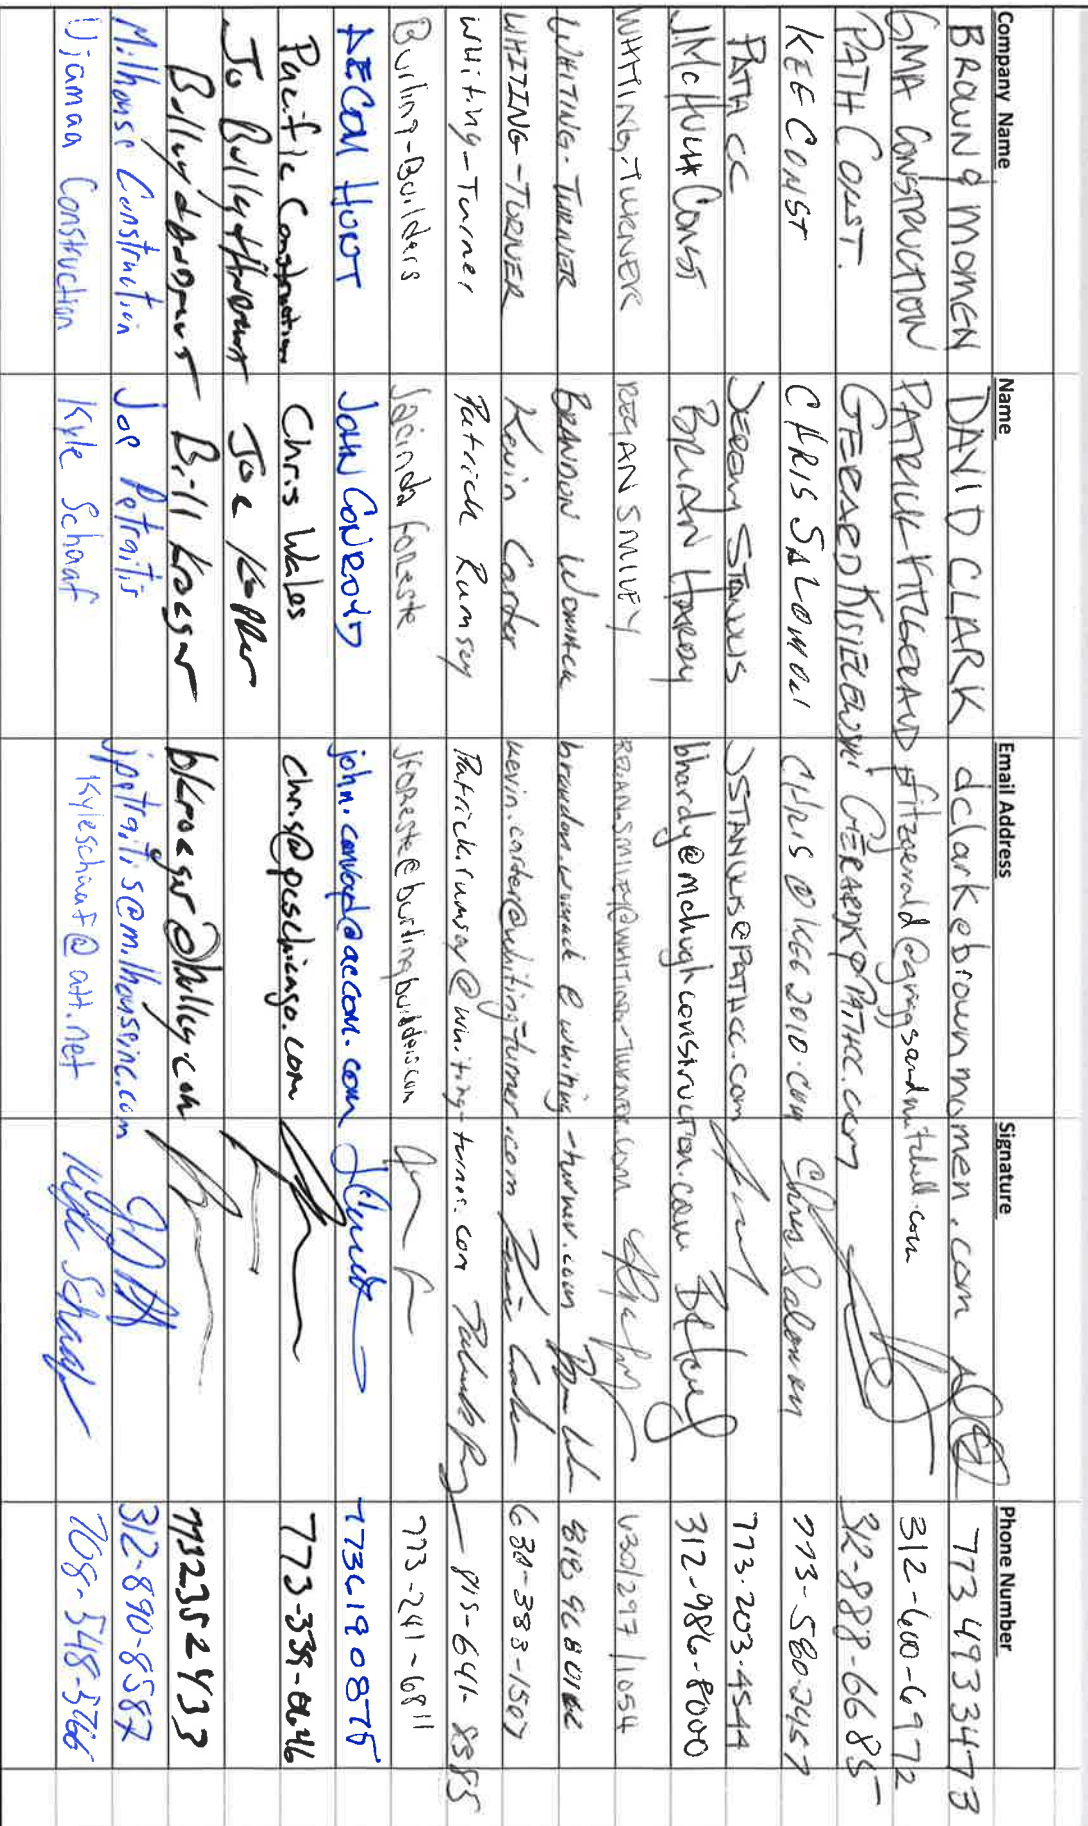 Company Name Name Email Address Signature Phone Number
BROWN & MOMEN DAVID CLARK dclark@brownmomen.com 773 493 3473
GMA CONSTRUCTION PATRICK FITZGERALD fitzgerald@griggsandmitchell.com 312-600-6972
PATH CONST. GERARD KISIELEWSKI GERARDK@PATHCC.com 312-888-6685
KEE CONST CHRIS SALOMON CHRIS@KEE2010.com Chris Salomon 773-580-2457
PATH CC JEREMY STANULIS JSTANULIS@PATHCC.com 773.203.4544
J.McHUGH CONST BRIAN HARDY bhardy@mchughconstruction.com 312-986-8000
WHITING-TURNER REGAN SMILEY REGAN.SMILEY@WHITING-TURNER.com 630/297/1054
WHITING-TURNER BRANDON WOMACK brandon.womack@whiting-turner.com
WHITING-TURNER Kevin Carter kevin.carter@whiting-turner.com 630-383-1507
Whiting-Turner Patrick Rumsey Patrick.rumsey@whiting-turner.com 815-641-8585
Burling-Builders Jacinda Foreste JFORESTE@burlingbuilders.com 773-241-6811
AECOM HUNT JOHN CONROY john.conroy@aecom.com 7736190875
Pacific Construction Chris Wales chris@pcschicago.com
Jo Bully & Andrews Joe Kopper
Bully & Andrews Bill Kroeger bkroeger@bully.com 7732352433
Milhouse Construction Joe Petraitis jpetraitis@milhouseinc.com 312-890-8587
Ujamaa Construction Kyle Schaaf kyleschaaf@att.net Kyle Schaaf 708-548-5766